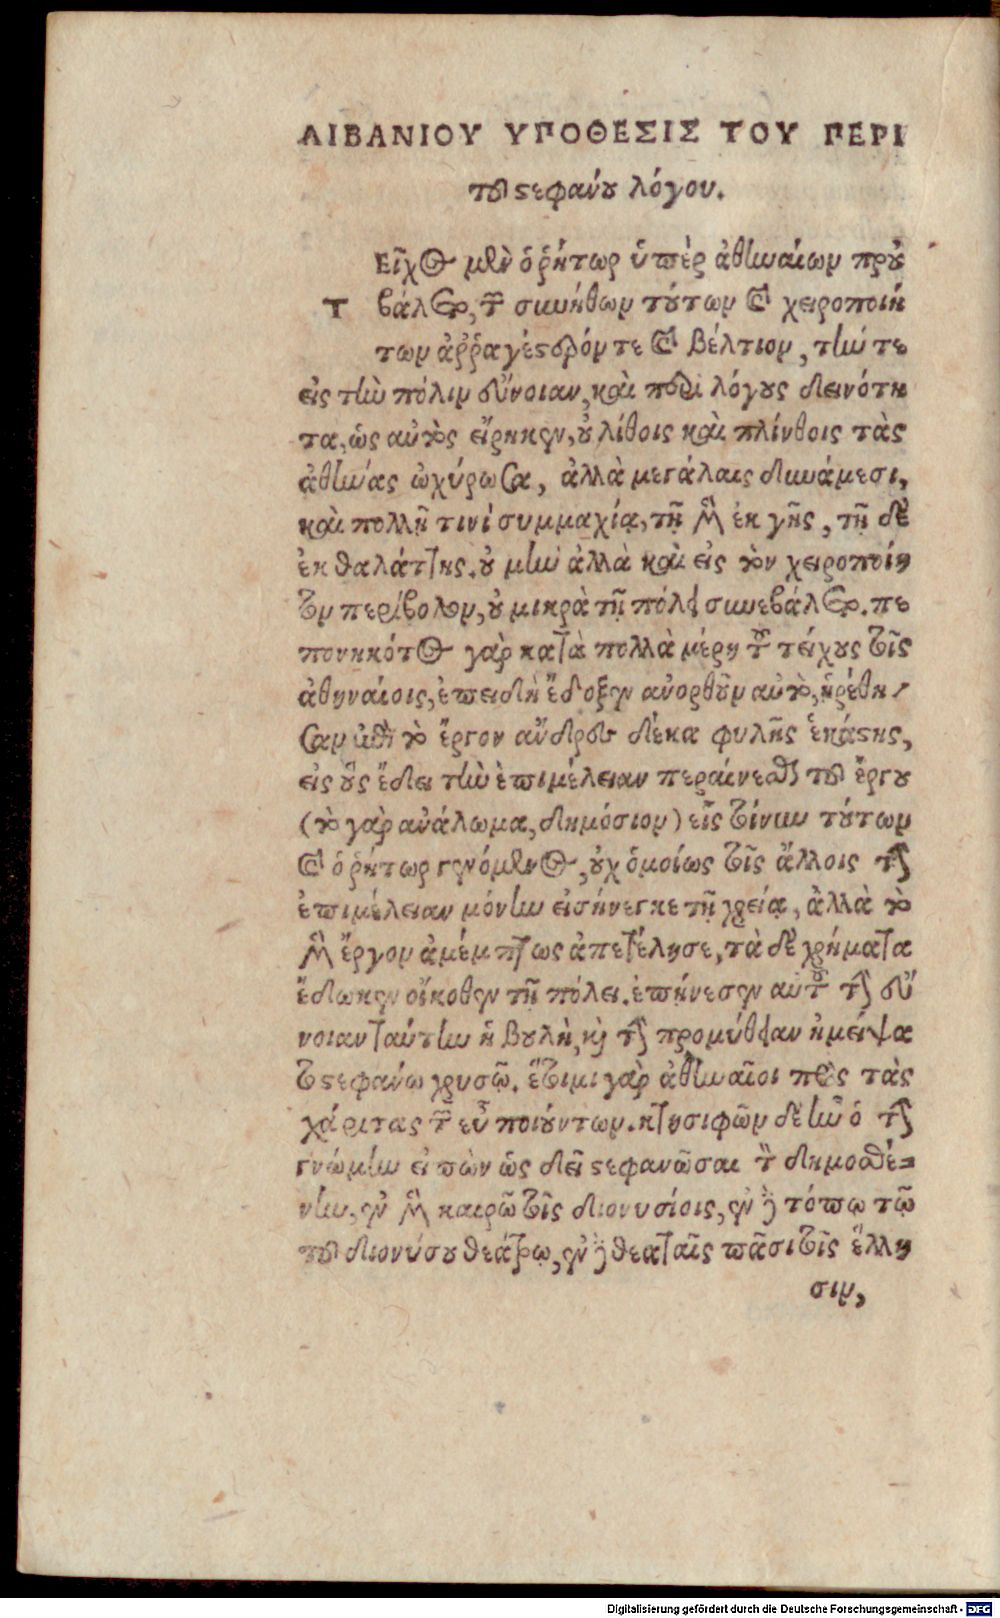 ΛΙΒΑΝΙΟΥ ΥΠΟΘΕΣΙΣ ΤΟΥ ΠΕΡΙ
τοῦ στεφάνου λόγου.
Τ
Εῖχος μὲν ὁ ῥήτωρ ὑπὲρ ἀθηναίων προὐ
βάλετο, τῶν συνήθων τούτων καὶ χειροποιή
των ἀῤῥαγέστερόν τε καὶ βέλτιον, τήν τε
εἰς τὴν πόλιν εὔνοιαν, καὶ περὶ λόγους δεινότη
τα, ὡς αὐτὸς εἴρηκεν, οὐ λίθοις καὶ πλίνθοις τὰς
ἀθήνας ὠχύρωσα, ἀλλὰ μεγάλαις δυνάμεσι,
καὶ πολλῇ τινὶ συμμαχίᾳ, τῇ μὲν ἐκ γῆς, τῇ δὲ
ἐκ θαλάττης. οὐ μὴν ἀλλὰ καὶ εἰς τὸν χειροποίη
τον περίβολον, οὐ μικρὰ τῇ πόλει συνεβάλετο. πε
πονηκότος γὰρ κατὰ πολλὰ μέρη τοῦ τείχους τοῖς
ἀθηναίοις, ἐπειδὴ ἔδοξεν ἀνορθοῦν αὐτὸ, ᾑρέθη/
σαν ἐπὶ τὸ ἔργον ἄνδρες δέκα φυλῆς ἑκάστης,
εἰς οὓς ἔδει τὴν ἐπιμέλειαν περαίνεσθαι τοῦ ἔργου
(τὸ γὰρ ἀνάλωμα, δημόσιον) εἷς τοίνυν τούτων
καὶ ὁ ῥήτωρ γενόμενος, οὐχ ὁμοίως τοῖς ἄλλοις τὴν
ἐπιμέλειαν μόνην εἰσήνεγκε τῇ χρείᾳ, ἀλλὰ τὸ
μὲν ἔργον ἀμέμπτως ἀπετέλησε, τὰ δὲ χρήματα
ἔδωκεν οἴκοθεν τῇ πόλει. ἐπῄνεσεν αὐτοῦ τὴν εὔ
νοιαν ταύτην ἡ βουλὴ, καὶ τὴν προμύθειαν ἠμείψα
το στεφάνῳ χρυσῷ. ἕτοιμοι γὰρ ἀθηναῖοι πρὸς τὰς
χάριτας τῶν εὖ ποιούντων. κτησιφῶν δὲ ἦν ὁ τὴν
γνώμην εἰπὼν ὡς δεῖ στεφανῶσαι τὸν δημοσθέ=
νην, ἐν μὲν καιρῷ τοῖς διονυσίοις, ἐν δὲ τόπῳ τῷ
τοῦ διονύσου θεάτρῳ, ἐν δὲ θεαταῖς πᾶσι τοῖς ἕλλη
σιν,
Digitalisierung gefördert durch die Deutsche Forschungsgemeinschaft - DFG